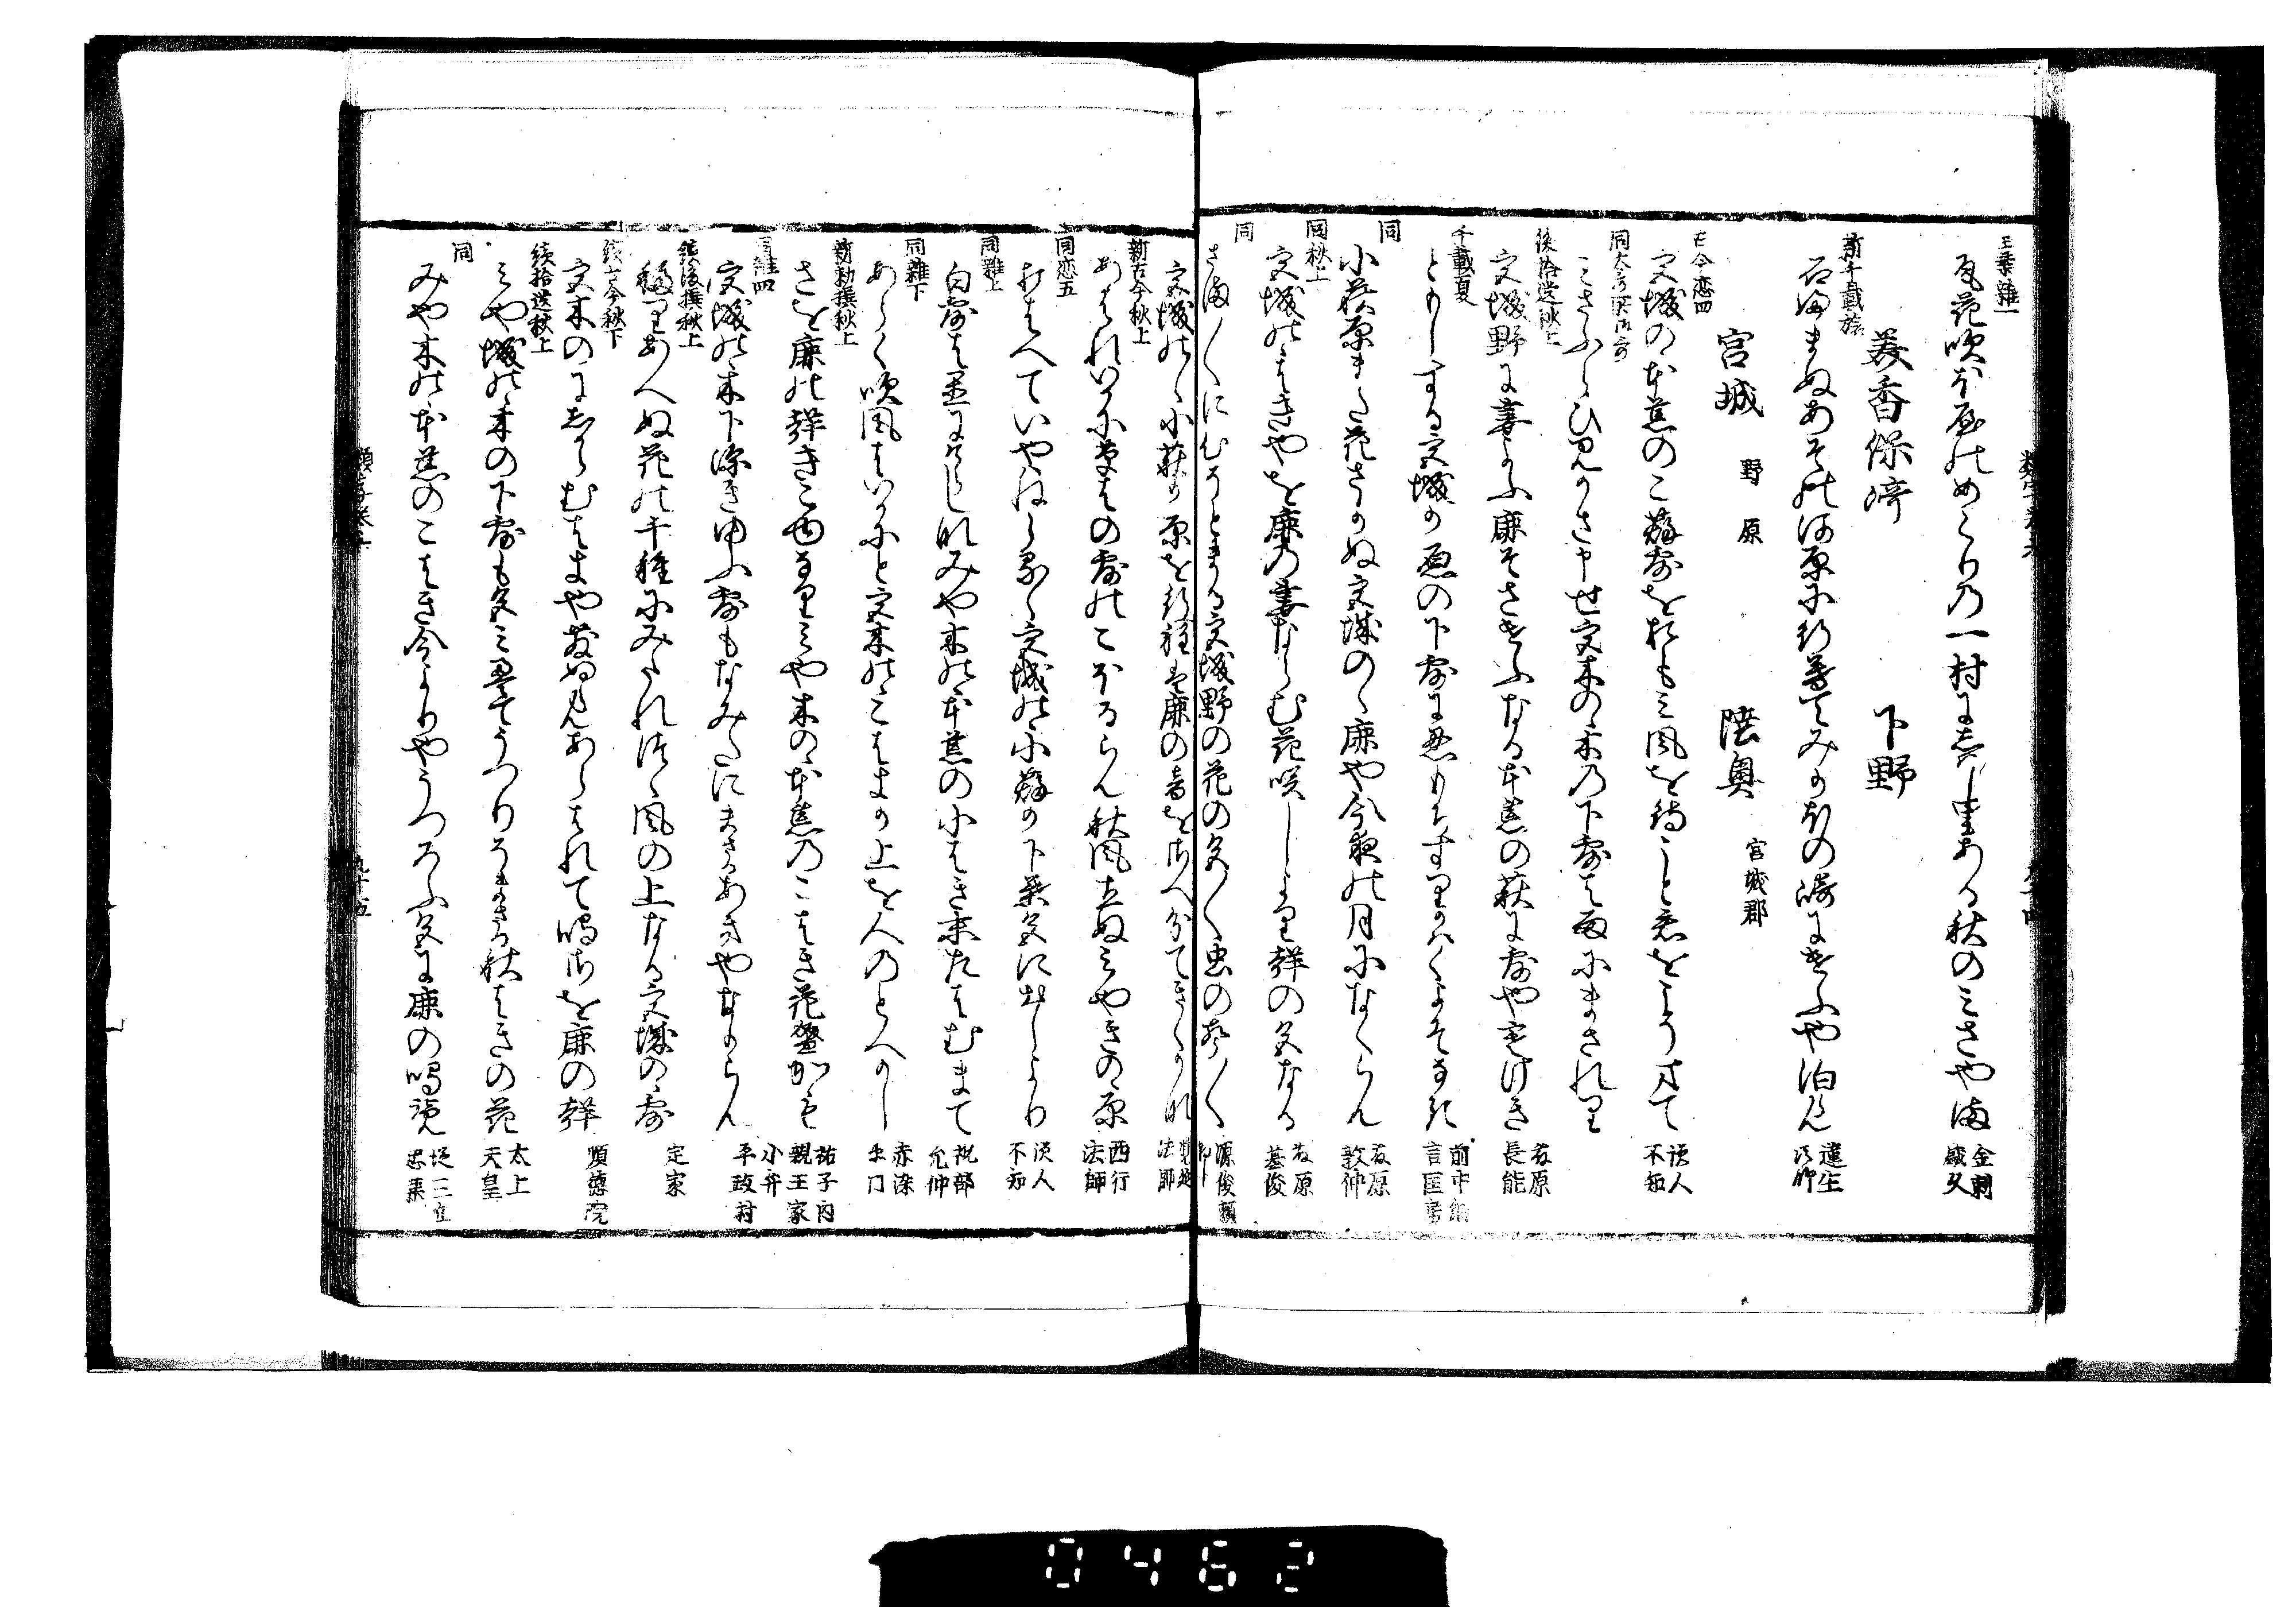 玉葉雑一
尾花吹ほ屋のめくりの一村にしはし里ある秋のみさやま 金刺盛久
美香保崎 下野
新千載旅
石ふまぬあその河原に行暮てみかほの崎にけふや泊らん 蓮生法師
宮城 野 原 陸奥 宮城郡
古今恋四
宮城のゝ本あらのこ萩露をおもみ風を待こと君をこそまて 読人不知
同大歌所御哥
みさふらひみかさと申せ宮木のゝ木の下露は雨にまされり
後拾遺秋上
宮城野に妻よふ鹿そさけふなる本あらの萩に露や寒けき 藤原長能
千載夏
ともしする宮城か原の下露に忍もちすりかはくよそなき 前中納言匡房
同
小萩原またも花さかぬ宮城のゝ鹿や今夜の月になくらん 藤原敦仲
同秋上
宮城のゝはきや を鹿の妻ならむ花咲しより声の色なる 藤原基俊
同
さま〱に心そとまる宮城野の花の色〱虫の声〱 源俊頼
宮城のゝ小萩か原を行程は鹿の音をさへ分てきくかな 覚延法師
新古今秋上
あはれいかに草葉の露のこほるらん秋風立ぬみやきのゝ原 西行法師
同恋五
おきかへていやはかなゝる宮城のゝ小萩か下葉色に出しより 読人不知
同雑上
白露は置にけらしなみや木のゝ本あらの小はき末たはむまて 祝部允仲
同雑下
あらく吹風はいかにと宮木のゝこはきか上を人のとへかし 赤染衛門
新勅撰秋上
さを鹿の声きこゆなりみや木のゝ本あらのこはき花盛かも 祐子内親王家小弁
同雑四
宮城のゝ木下深きゆふ露もなみたにまさるあきやなからん 平政村
続後撰秋上
移りあへぬ花の千種にみたれつゝ風の上なる宮城のゝ露 定家
続古今秋下
順徳院
続拾遺秋上
みや城のゝ木の下露も色みえてうつりそまさる秋はきの花 太上天皇
同
みや木のゝ本あらのこはき今よりやうつろふ色に鹿の鳴覧 従三位忠兼
九十五
0462